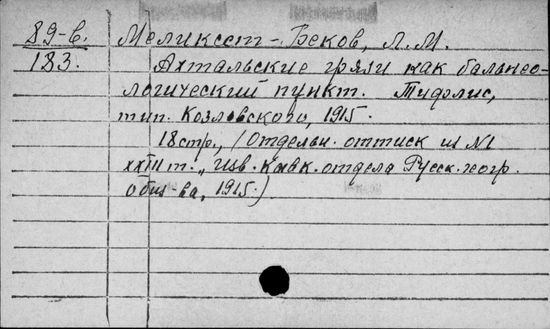 89-в. Меликсет-Беков, Л.М.
183. Ахтальские грязи как бальнео-
логический пункт. Тифлис,
тип. Козловского, 1915.
18 стр., (Отдельн. оттиск из №1
XXIII т. „Изв. Кавк. отдела Русск. геогр.
общ-ва, 1915.)